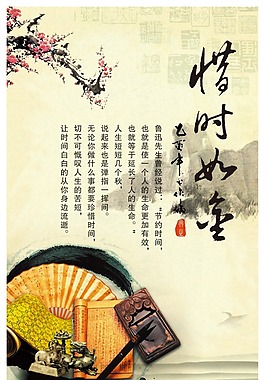 惜时如金
鲁迅先生曾经说过：“节约时间，
也就是使一个人的生命更加有效，
也就等于延长了人的生命。”：
人生短短几个秋，
说起来也是弹指一挥间。
无论你做什么事都要珍惜时间，
切不可慨叹人生的苦短，
让时间白白的从你身边流逝。